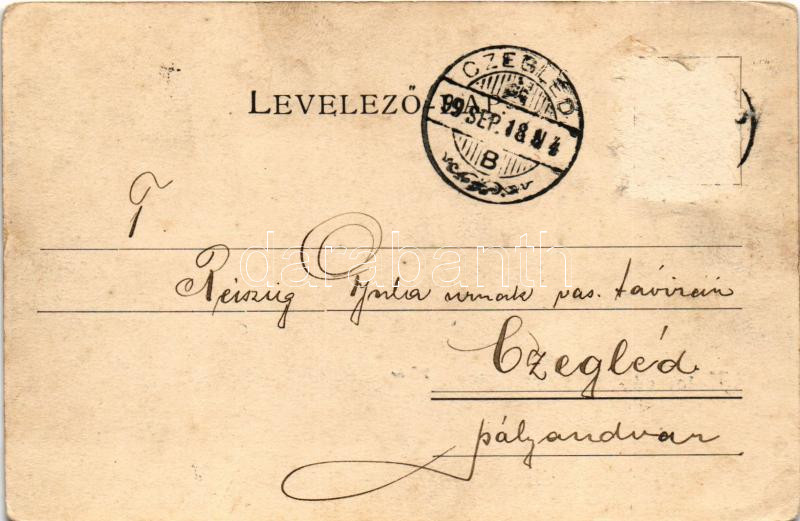 LEVELEZŐ-LAP
CZEGLÉD
99 SEP. 18 N 4
B
T
Reiszig Gyula urnak vas. távirain
Czegléd
pályaudvar
darabanth